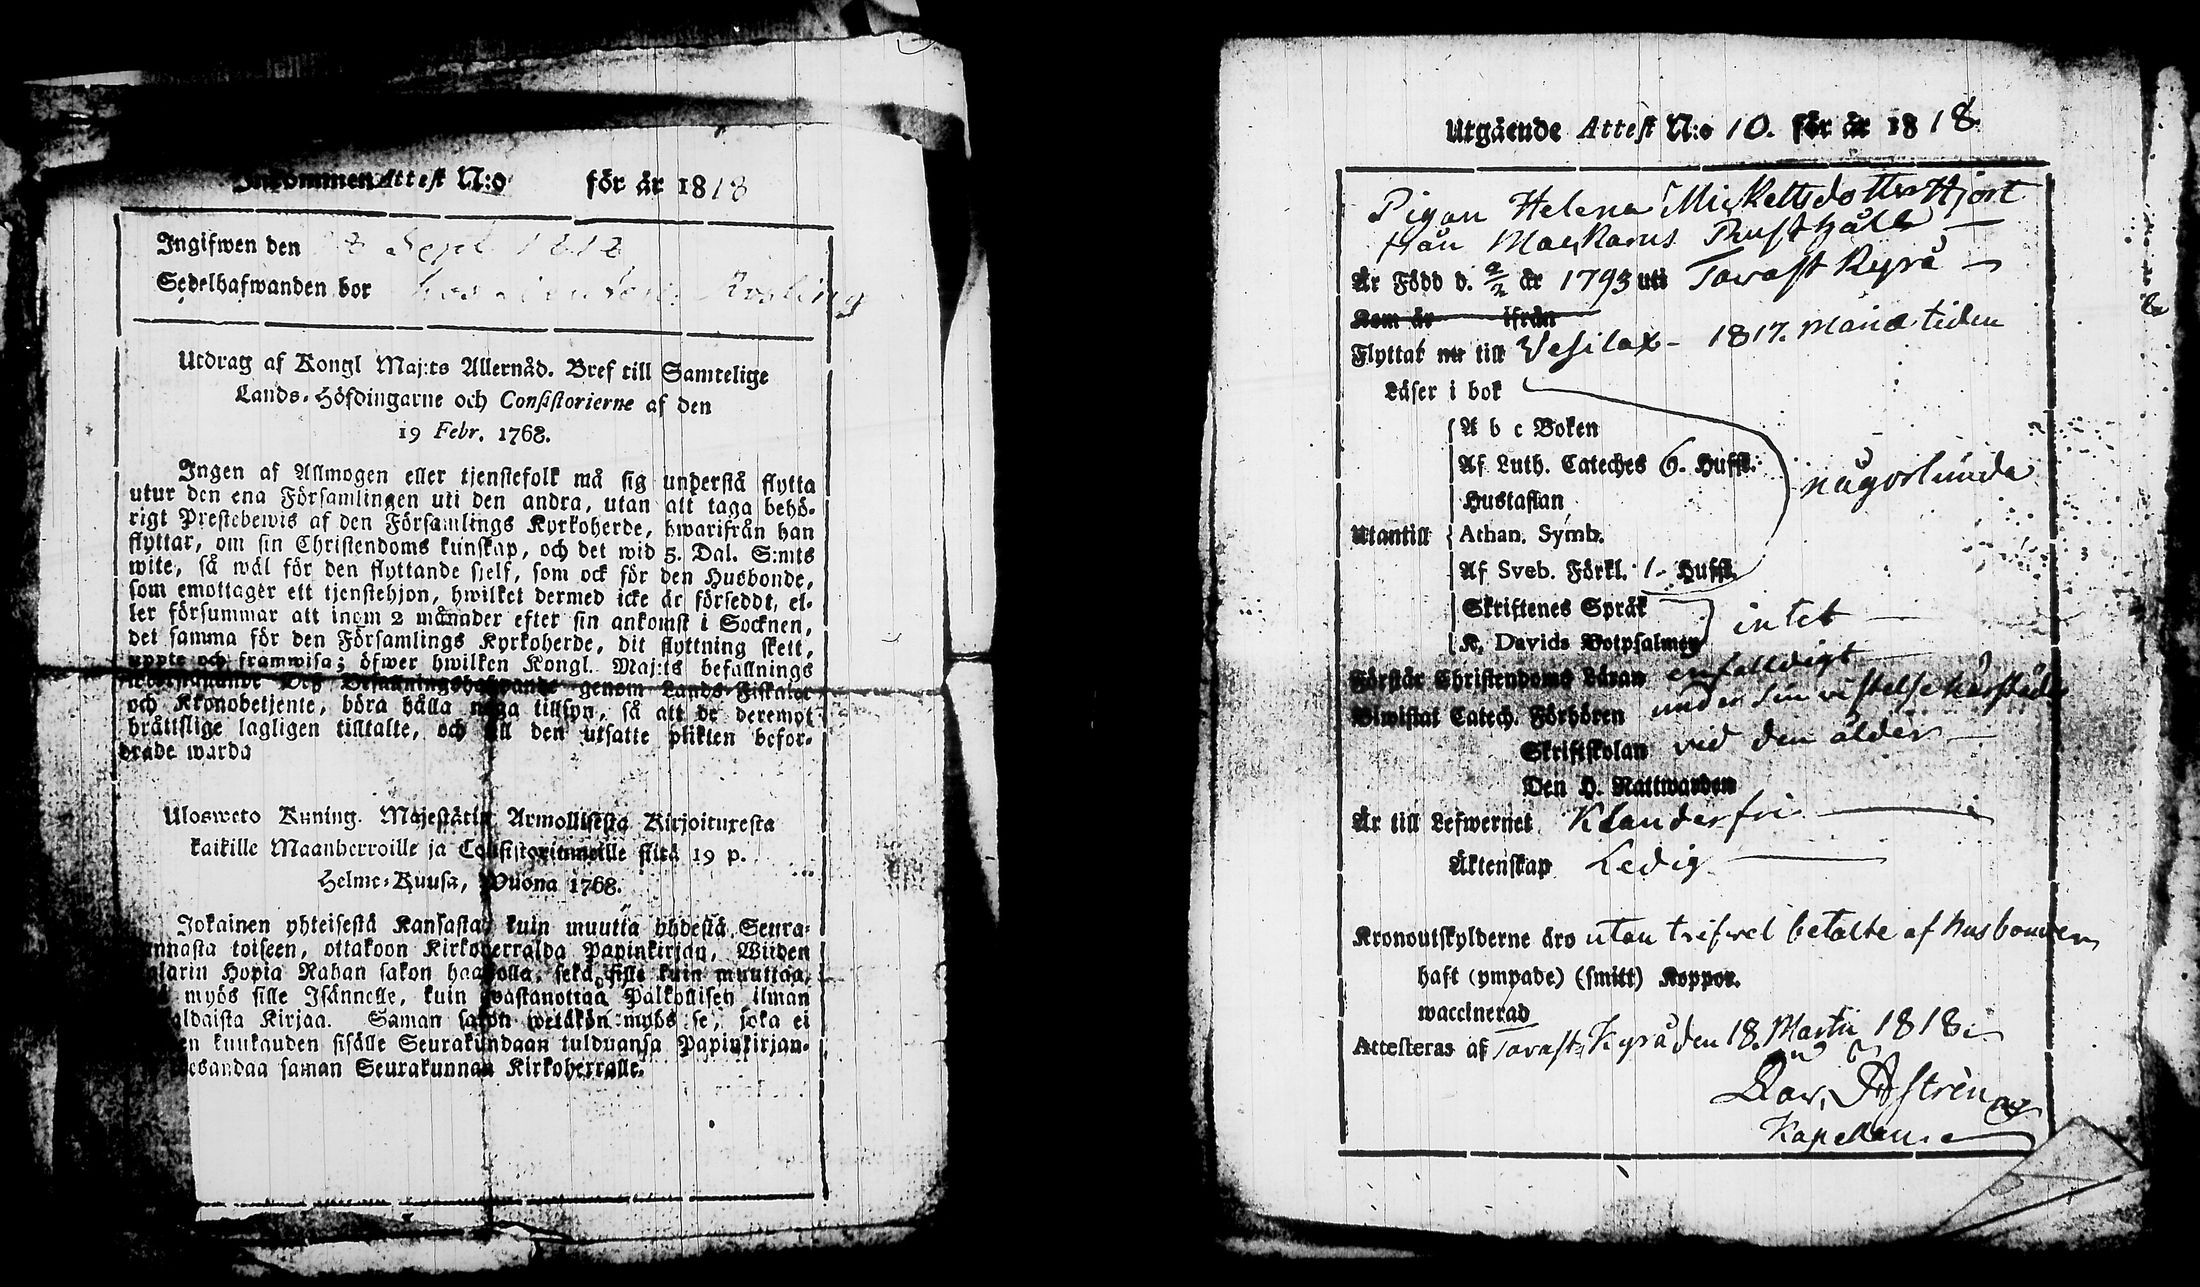 Inkommen Attest N:o för år 1818
Ingifwen den 8 Sept 1818
Sedelhafwanden bor hos
Utdrag af Kongl Maj:ts Allernåd. Bref till Samtelige
Lands-Höfdingarne och Consistorierne af den
19 Febr. 1768.
Ingen af Allmogen eller tjenstefolk må sig understå flytta
utur den ena Församlingen uti den andra, utan att taga behö-
rigt Prestebewis af den Församlings Kyrkoherde, hwarifrån han
flyttar, om sin Christendoms kunskap, och det wid 5. Dal. S:mts
wite, så wäl för den flyttande sjelf, som ock för den Husbonde,
som emottager ett tjenstehjon, hwilket dermed icke är försedt, el-
ler försummar att inom 2 månader efter sin ankomst i Socknen,
det samma för den Församlings Kyrkoherde, dit flyttning skett,
uppte och framwisa; öfwer hwilken Kongl. Maj:ts befallnings
Befallningshafwande genom Lands Fiskaler
och Kronobetjente, böra hålla noga tillsyn, så att de deremot
bråttslige lagligen tilltalte, och till den utsatte plikten befor-
drade warda
Ulosweto Kuning. Majestätin Armollisesta Kirjoituxesta
kaikille Maanherroille ja Consistoriumeille siitä 19 p.
Helme-Kuusa, Wuona 1768.
Jokainen yhteisestä Kansasta, kuin muutta yhdestä Seura-
kunnasta toiseen, ottakoon Kirkoherralda Papinkirjan, Wiiden
talarin Hopia Rahan sakon haastolla, sekä sille kuin muuttaa,
myös sille Isännelle, kuin wastanottaa Palkollisen ilman
Saman sakon wetäkön myös se, joka ei
kuukauden sisälle Seurakundaan tulduansa Papinkirjan-
saman Seurakunnan Kirkoherralle.
Utgående Attest N:o 10. för år 1818
Pigan Helena Mickelsdotter Hjort
från Mackarus Rusthåll
Är Född d. 2/2 år 1793 uti Tavast Kyrå
Kom år ifrån
Flyttat nu till Vesilax 1817. Marie tiden
Läser i bok
A b c Boken
Af Luth. Cateches 6. Hufst. någorlunda
Hustaflan
Utantill Athan. Symb.
Af Sveb. Förkl. 1. Hufst.
Skriftenes Språk
K. Davids Botpsalmer intet
Förstår Christendoms Läran enfalldigt
Biwistat Catech. Förhören under sin vistelse härstädes
Skriftskolan ved den ålder
Den H. Nattwarden
Är till Lefwernet Klanderfri
Äktenskap Ledig
Kronoutskylderne äro utan trifvel betalte af husbonden
haft (ympade) (smitt) Koppor.
waccinerad
Attesteras af Tavast Kyrå den 18. Martii 1818
Dav. Aström
Kapellan